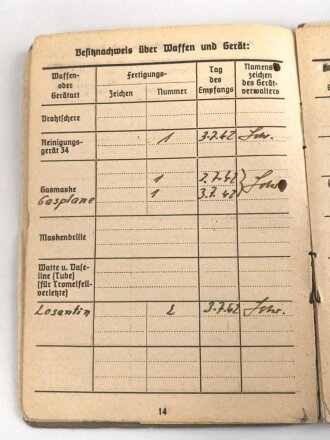 Besitznachweis über Waffen und Gerät:
Waffen- oder Gerätart Fertigungs- Zeichen Nummer Tag des Empfangs Namens- zeichen des Gerät- verwalters
Drahtschere
Reinigungs-
gerät 34 1 3.7.42
Gasmaske 1 3.7.42
Gasplane 1 3.7.42
Maskenbrille
Watte u. Vase-
line (Tube)
(für Tromelfell-
verletzte)
Losantin 2 3.7.42
14